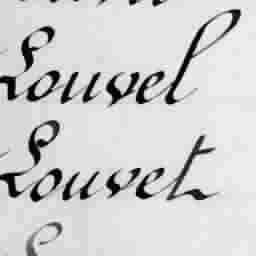 Louvel
Louvet